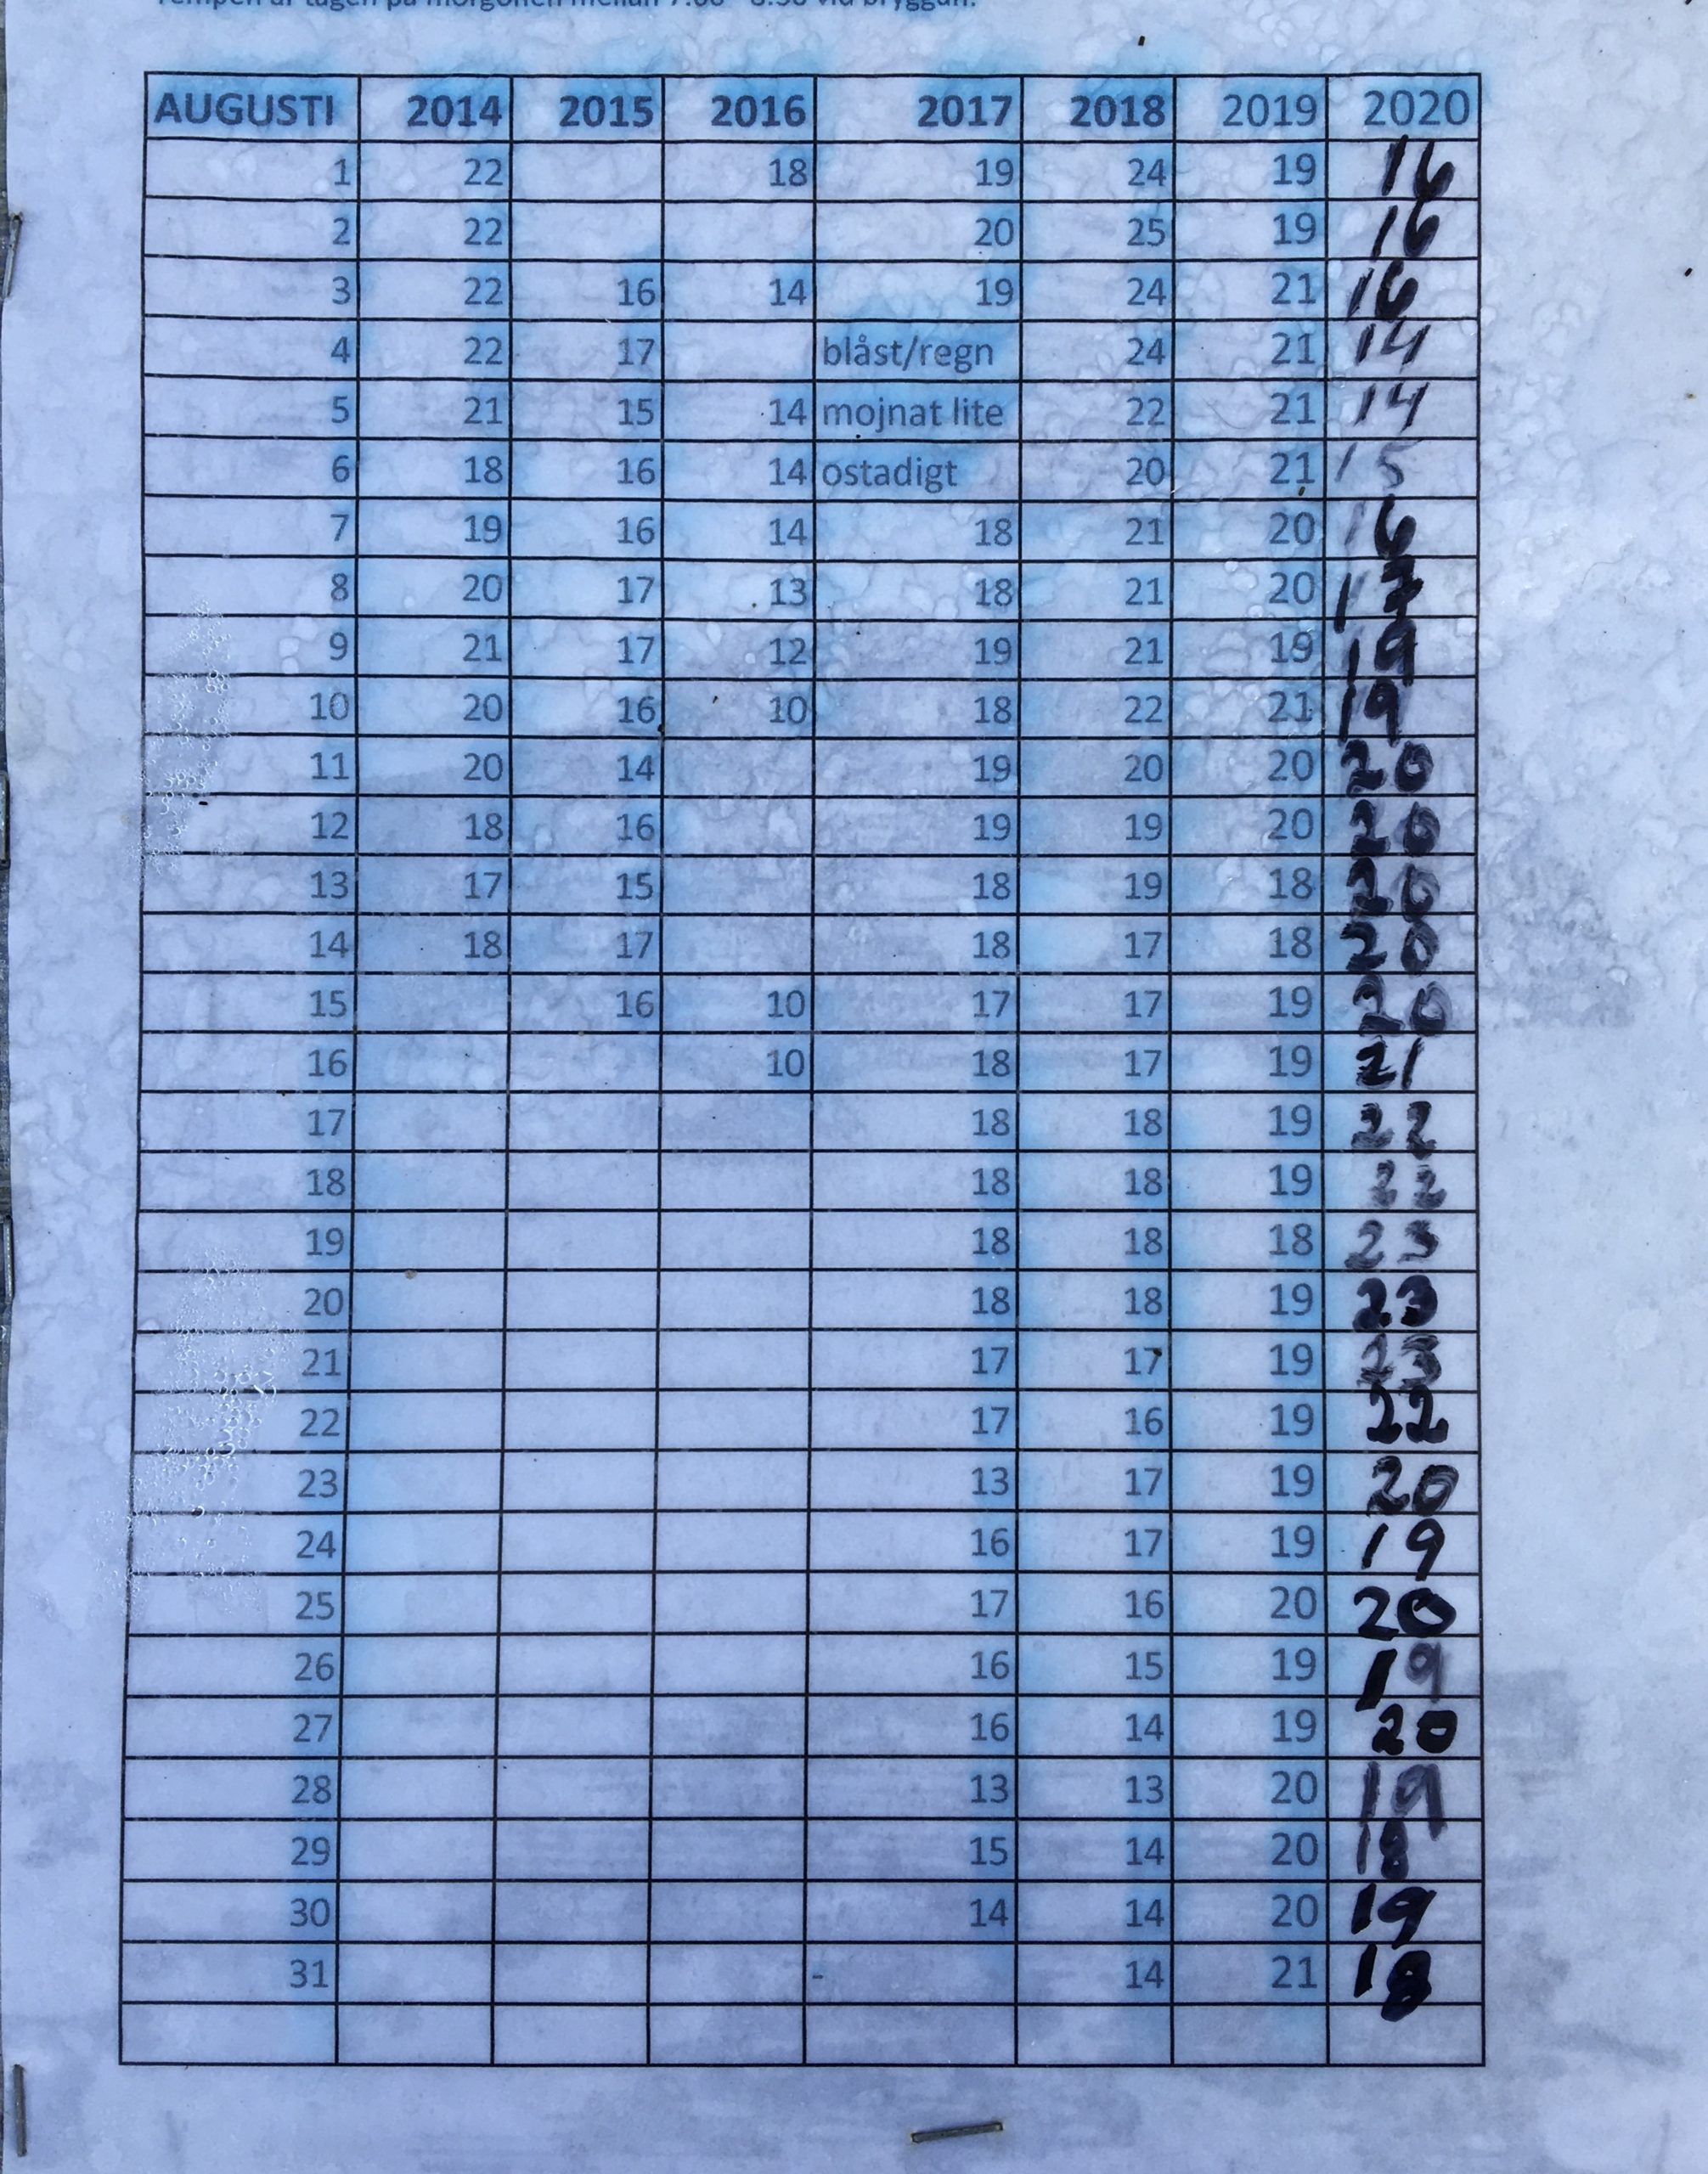 Tempen är tagen på morgonen mellan 7.00 - 8.30 vid bryggan.
AUGUSTI 2014 2015 2016 2017 2018 2019 2020
1 22 18 19 24 19 16
2 22 20 25 19 16
3 22 16 14 19 24 21 16
4 22 17 blåst/regn 24 21 14
5 21 15 14 mojnat lite 22 21 14
6 18 16 14 ostadigt 20 21 15
7 19 16 14 18 21 20 16
8 20 17 13 18 21 20 17
9 21 17 12 19 21 19 19
10 20 16 10 18 22 21 19
11 20 14 19 20 20 20
12 18 16 19 19 20 20
13 17 15 18 19 18 20
14 18 17 18 17 18 20
15 16 10 17 17 19 20
16 10 18 17 19 21
17 18 18 19 22
18 18 18 19 22
19 18 18 18 23
20 18 18 19 23
21 17 17 19 23
22 17 16 19 22
23 13 17 19 20
24 16 17 19 19
25 17 16 20 20
26 16 15 19 19
27 16 14 19 20
28 13 13 20 19
29 15 14 20 18
30 14 14 20 19
31 - 14 21 18